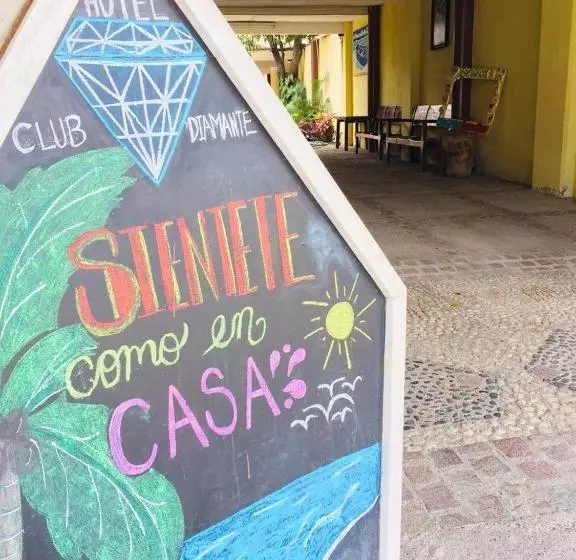 HOTEL
CLUB DIAMANTE
SIENTETE
como en
CASA